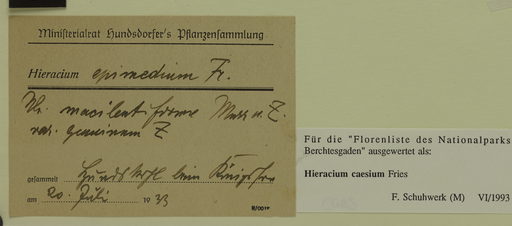 Ministerialrat Hundsdorfer's Pflanzensammlung
Hieracium epimedium Fr.
macilentiforme Murr u. Z.
var. genuinum Z
gesammelt
am 20. Juli 1933
Für die "Florenliste des Nationalparks
Berchtesgaden" ausgewertet als:
Hieracium caesium Fries
F. Schuhwerk (M) VI/1993